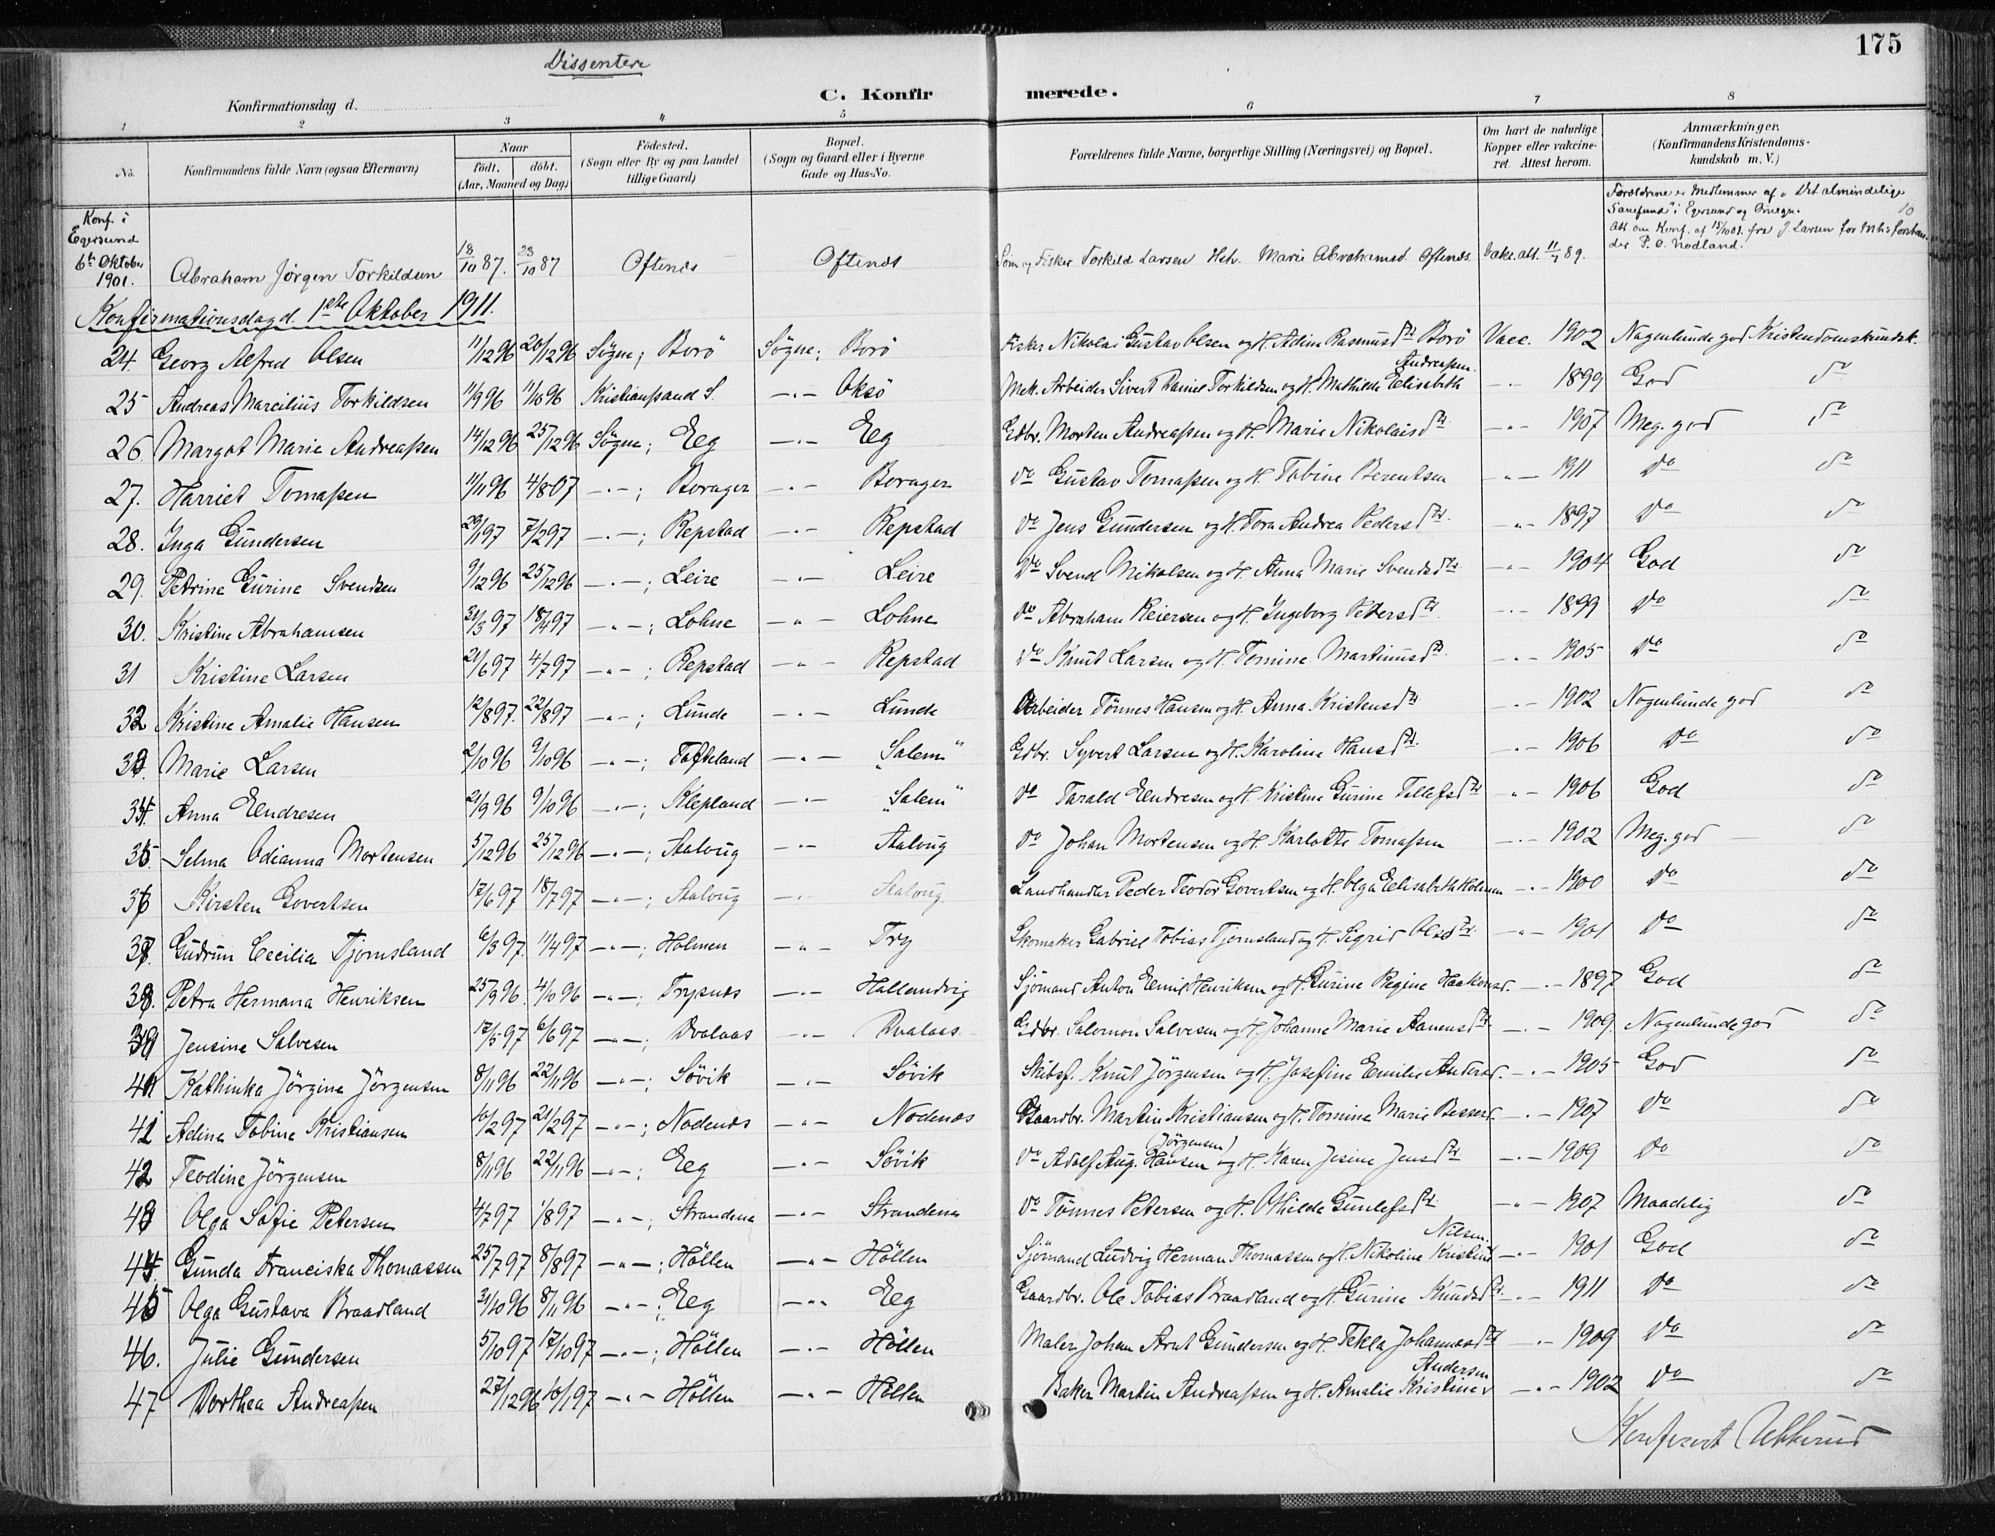 175
Dissentere
Konfirmationsdag d.
C. Konfirmerede.
1 2 3 4 5 6 7 8
No. Konfirmandens fulde Navn (ogsaa Efternavn) Naar födt. döbt. (Aar, Maaned og Dag) Födested. (Sogn eller By og paa Landet tillige Gaard.) Bopæl. (Sogn og Gaard eller i Byerne Gade og Hus-No. Forældrenes fulde Navne, borgerlige Stilling (Næringsvei) og Bopæl. Om havt de naturlige Kopper eller vakcineret. Attest herom. Anmærkninger. (Konfirmandens Kristendomskundskab m. V.)
Konf. i Egersund 6te Oktober 1901. Abraham Jörgen Torkildsen 18/10 87. 23/10 87 Oftenæs Oftenæs Fisker Torkild Larsen Marie Abrahamsd Oftenæs Vakc. att. 11/7 89. Forældrene er Medlemmer af "Det almindelige Samfund" i Egersund og Omegn. Att om Konf. af 15/10 01. fra J Larsen for
Konfirmationsdag d. 1ste Oktober 1911.
24. Georg Alfred Olsen 11/12 96 20/12 96 Sögne; Borö Sögne; Borö Fisker Nikolai Gustav Olsen og H. Adine Rasmusdtr Borö Vacc. 1902 Nogenlunde god Kristendomskundsk.
25 Andreas Marcilius Torkildsen 11/9 96 11/10 96 Kristianssand S. -"- Oksö Mek. Arbeider Sivert Daniel Torkildsen og H. Mathilde Elisabeth Andreassen -"- 1899 God do
26. Margot Marie Andreassen 14/12 96 25/12 96 Sögne; Eeg -"- Eeg Gdbr. Morten Andreassen og H. Marie Nikolaisdtr -"- 1907 Meg. god do
27. Harriet Tomassen 11/11 96 4/8 07 -"-; Borager -"- Borager do Gustav Tomassen og H. Tobine Berentsen -"- 1911 do do
28. Inga Gundersen 29/1 97 7/2 97 -"-; Repstad -"- Repstad do Jens Gundersen og H. Tora Andrea Pedersdtr. -"- 1897 do do
29. Petrine Gurine Svendsen 9/12 96 25/12 96 -"-; Leire -"- Leire do Svend Nikolsen og H. Anna Marie Svendsdtr -"- 1904 God do
30. Kristine Abrahamsen 31/3 97 18/4 97 -"-; Lohne -"- Lohne do Abraham Reiersen og H. Ingeborg Pettersdtr -"- 1899 do do
31 Kristine Larsen 21/6 97 4/7 97 -"-; Repstad -"- Repstad do Knut Larsen og H. Tomine Martinusdtr -"- 1905 do do
32 Kristine Amalie Hansen 12/8 97. 22/8 97 -"-; Lunde -"- Lunde Arbeider Tönnes Hansen og H. Anna Kristensdtr -"- 1902 Nogenlunde god do
33. Marie Larsen 2/10 96 9/10 96 -"-; Tofteland -"- "Salem" Gdbr. Syvert Larsen og H. Karoline Hansdtr. -"- 1906 do do
34. Anna Elndresen 21/9 96 9/10 96 -"-; Klepland -"- "Salem" do Tarald Elndresen og H. Kristine Gurine Tellefsdtr -"- 1906 God do
35 Selma Odianna Mortensen 5/12 96 25/12 96 -"-; Aaloug -"- Aaloug do Johan Mortensen og H. Karlotte Tomassen -"- 1902 Meg. god do
36 Kirsten Govertsen 17/6 97 18/7 97 -"-; Aaloug -"- Aaloug Landhandler Peder Teodor Govertsen og H. Olga Elisabeth -"- 1900 do do
37. Gudrun Cecilia Tjomsland 6/3 97. 11/4 97 -"-; Holmen -"- Try Skomaker Gabriel Tobias Tjomsland og H. Sigrid Olsdtr. -"- 1901 do do
38. Petra Hermana Henriksen 25/9 96. 4/10 96 -"-; Trysnes -"- Hallandvig Sjömand Anton Emil Henriksen og H. Gurine Regine Haakonsd. -"- 1897 God do
39 Jensine Salvesen 17/5 97 6/6 97 -"-; Dvalaas -"- Dvalaas Gdbr. Salomon Salvesen og H. Johanne Marie Aanensdtr. -"- 1909. Nogenlunde god do
40 Kathinka Jörgine Jörgensen 8/11 96 22/11 96 -"-; Sövik -"- Sövik Skibsf. Knut Jörgensen og H. Josefine Emilie Andersd. -"- 1905 God do
41 Adina Tobine Kristiansen 10/2 97 21/2 97 -"-; Nodenæs -"- Nodenæs Gaardbr. Martin Kristiansen og H. Tomine Marie Bessesd. -"- 1907 do do
42 Teodine Jörgensen 8/11 96 22/11 96 -"-; Eeg -"- Sövik do Adolf Aug. Hansen (Jörgensen) og H. Karen Jesine Jensdtr -"- 1909 do do
43 Olga Sofie Petersen 4/7 97 1/8 97 -"-; Strandena -"- Strandena do Tönnes Petersen og H. Othilde Gunlefsdtr. -"- 1907 Maadelig do
44. Gunda Franciska Thomassen 25/7 97 8/8 97 -"-; Höllen -"- Höllen Sjömand Ludvig Herman Thomassen og H. Nikoline Kristine Nilsen. -"- 1901 God do
45 Olga Gustava Braadland 31/10 96 8/11 96 -"-; Eeg -"- Eeg Gaardbr. Ole Tobias Braadland og H. Gurine Knudsdtr. -"- 1911 do do
46. Julie Gundersen 5/10 97 17/10 97 -"-; Höllen -"- Höllen Maler Johan Arnt Gundersen og H. Tekla Johannesdtr -"- 1909 do do
47 Dorthea Andreassen 27/12 96 10/1 97 -"- Höllen -"- Höllen Baker Martin Andreassen og H. Amalie Kristine Andersen -"- 1902 do do
Konferert